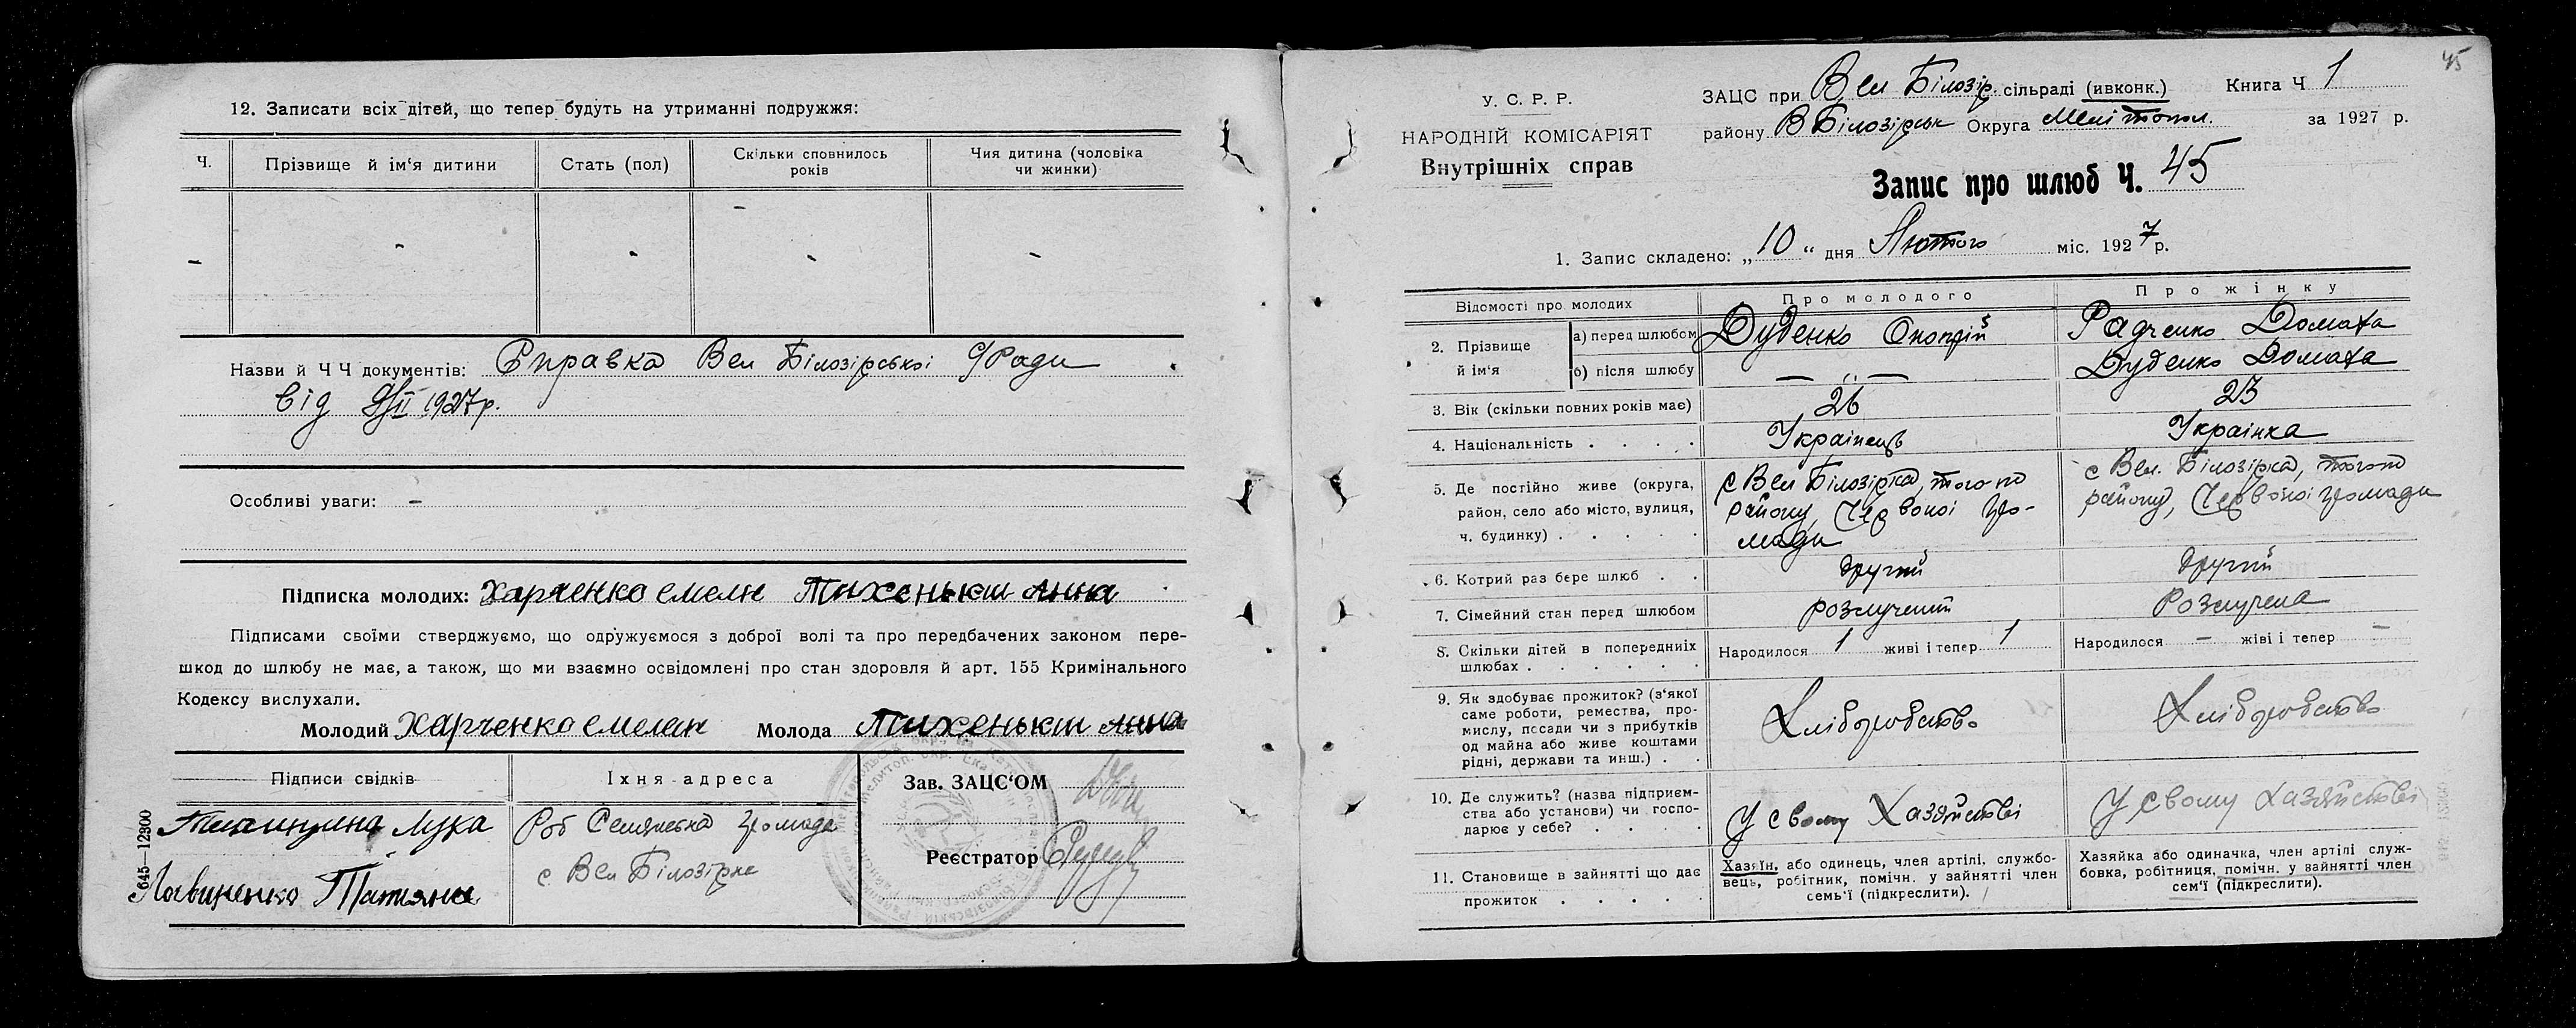 12. Записати всіх дітей, що тепер будуть на утриманні подружжя:
Ч.
Прізвище й ім‘я дитини
Стать (пол)
Скільки сповнилось
років
Чия дитина (чоловіка
чи жинки)
Назви й Ч Ч документів: Справка Вел Білозірської С/Ради
від 9/II 1927р.
Особливі уваги: –
Підписка молодих: Харченко Емелян Тихенькій Анна
Підписами своїми стверджуємо, що одружуємося з доброї волі та про передбачених законом пере-
шкод до шлюбу не має, а також, що ми взаємно освідомлені про стан здоровля й арт. 155 Кримінального
Кодексу вислухали.
Молодий Харченко Емелян Молода Тихенькій Анна
Підписи свідків
Їхня адреса
Лука
Роб Селянська громада
с Вел Білозірка
Татяна
Зав. ЗАЦС‘ОМ
Реєстратор
645—12300
45
У. С. Р. Р.
НАРОДНІЙ КОМІСАРІЯТ
Внутрішніх справ
ЗАЦС при Вел Білозір. сільраді (ивконк.) Книга Ч 1
району В Білозірськ Округа Мелітопол. за 1927 р.
Запис про шлюб Ч. 45
1. Запис складено: „10“ дня Лютого міс. 1927 р.
Відомості про молодих
Про молодого
Про жінку
2. Прізвище й ім‘я
а) перед шлюбом Дуденко Онопрій Радченко Домаха
б) після шлюбу — „ — Дуденко Домаха
3. Вік (скільки повних років має) 26 23
4. Національність Українець Українка
5. Де постійно живе (округа,
район, село або місто, вулиця,
ч. будинку)
с Вел Білозірка, того по
району, Червоної гро-
мади
с Вел. Білозірка, того по
району, Червоної громади
6. Котрий раз бере шлюб другий другий
7. Сімейний стан перед шлюбом розлучений Розлучена
8. Скільки дітей в попередніх
шлюбах
Народилося 1 живі і тепер 1
Народилося – жіві і тепер –
9. Як здобуває прожиток? (з‘якої
саме роботи, ремества, про-
мислу, посади чи з прибутків
од майна або живе коштами
рідні, держави та инш.)
Хліборобство
Хліборобство
10. Де служить? (назва підприєм-
ства або установи) чи госпо-
дарює у себе?
У свому Хазяйстві
У свому Хазяйстві
11. Становище в зайнятті що дає
прожиток
Хазяїн, або одинець, член артілі, службо-
вець, робітник, помічн. у зайнятті член
семь‘ї (підкреслити).
Хазяйка або одиначка, член артілі служ-
бовка, робітниця, помічн. у вайнятті член
сем‘ї (підкреслити).